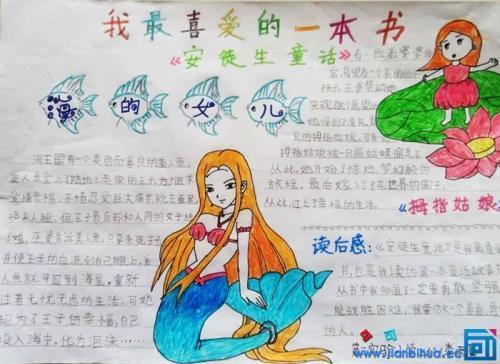 我最喜爱的一本书
《安徒生童话》
海的女儿
海王国有个美丽而善良的美人鱼,
美人鱼爱上了陆地上英俊的王子,为了追求
爱情幸福,不惜忍受巨大痛苦,脱去鱼尾,
换来人腿。但王子最后却和人间的女子结
了婚。巫婆告诉美人鱼,只要杀死王子,
并使王子的血流到自己腿上,美
人鱼就可回到海里,重新
过着无忧无虑的生活。可她
却为了王子的幸福,自己
投入海中,化为泡沫。
有一位老婆婆
实现这个愿望
的拇指姑娘
拇指姑娘被一只癞蛤蟆偷走了
从此,她开始了惊险、梦幻般的
旅程。最后嫁给了花世界的国王。
从此,过上了幸福的生活。
《拇指姑娘》
读后感:
《安徒生童话》是我最喜
书,也是我读的第一本童话故事
从书中我知道了一定要勇敢、坚强
能战胜困难。我要做一个善良
的人。
第二实验小学
www.jianbihua.com